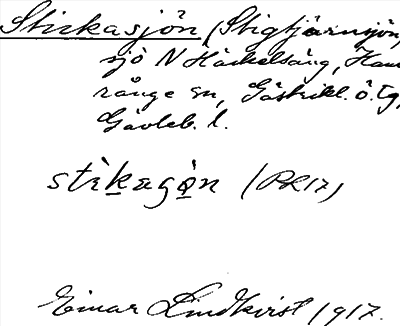 Stickasjön (Stigtjärnsjön,
sjö N Häckelsäng, Ham
rånge sn, Gästrikl. ö. tg,
Gävleb. l.
(RR17)
Einar Lindkvist 1917.